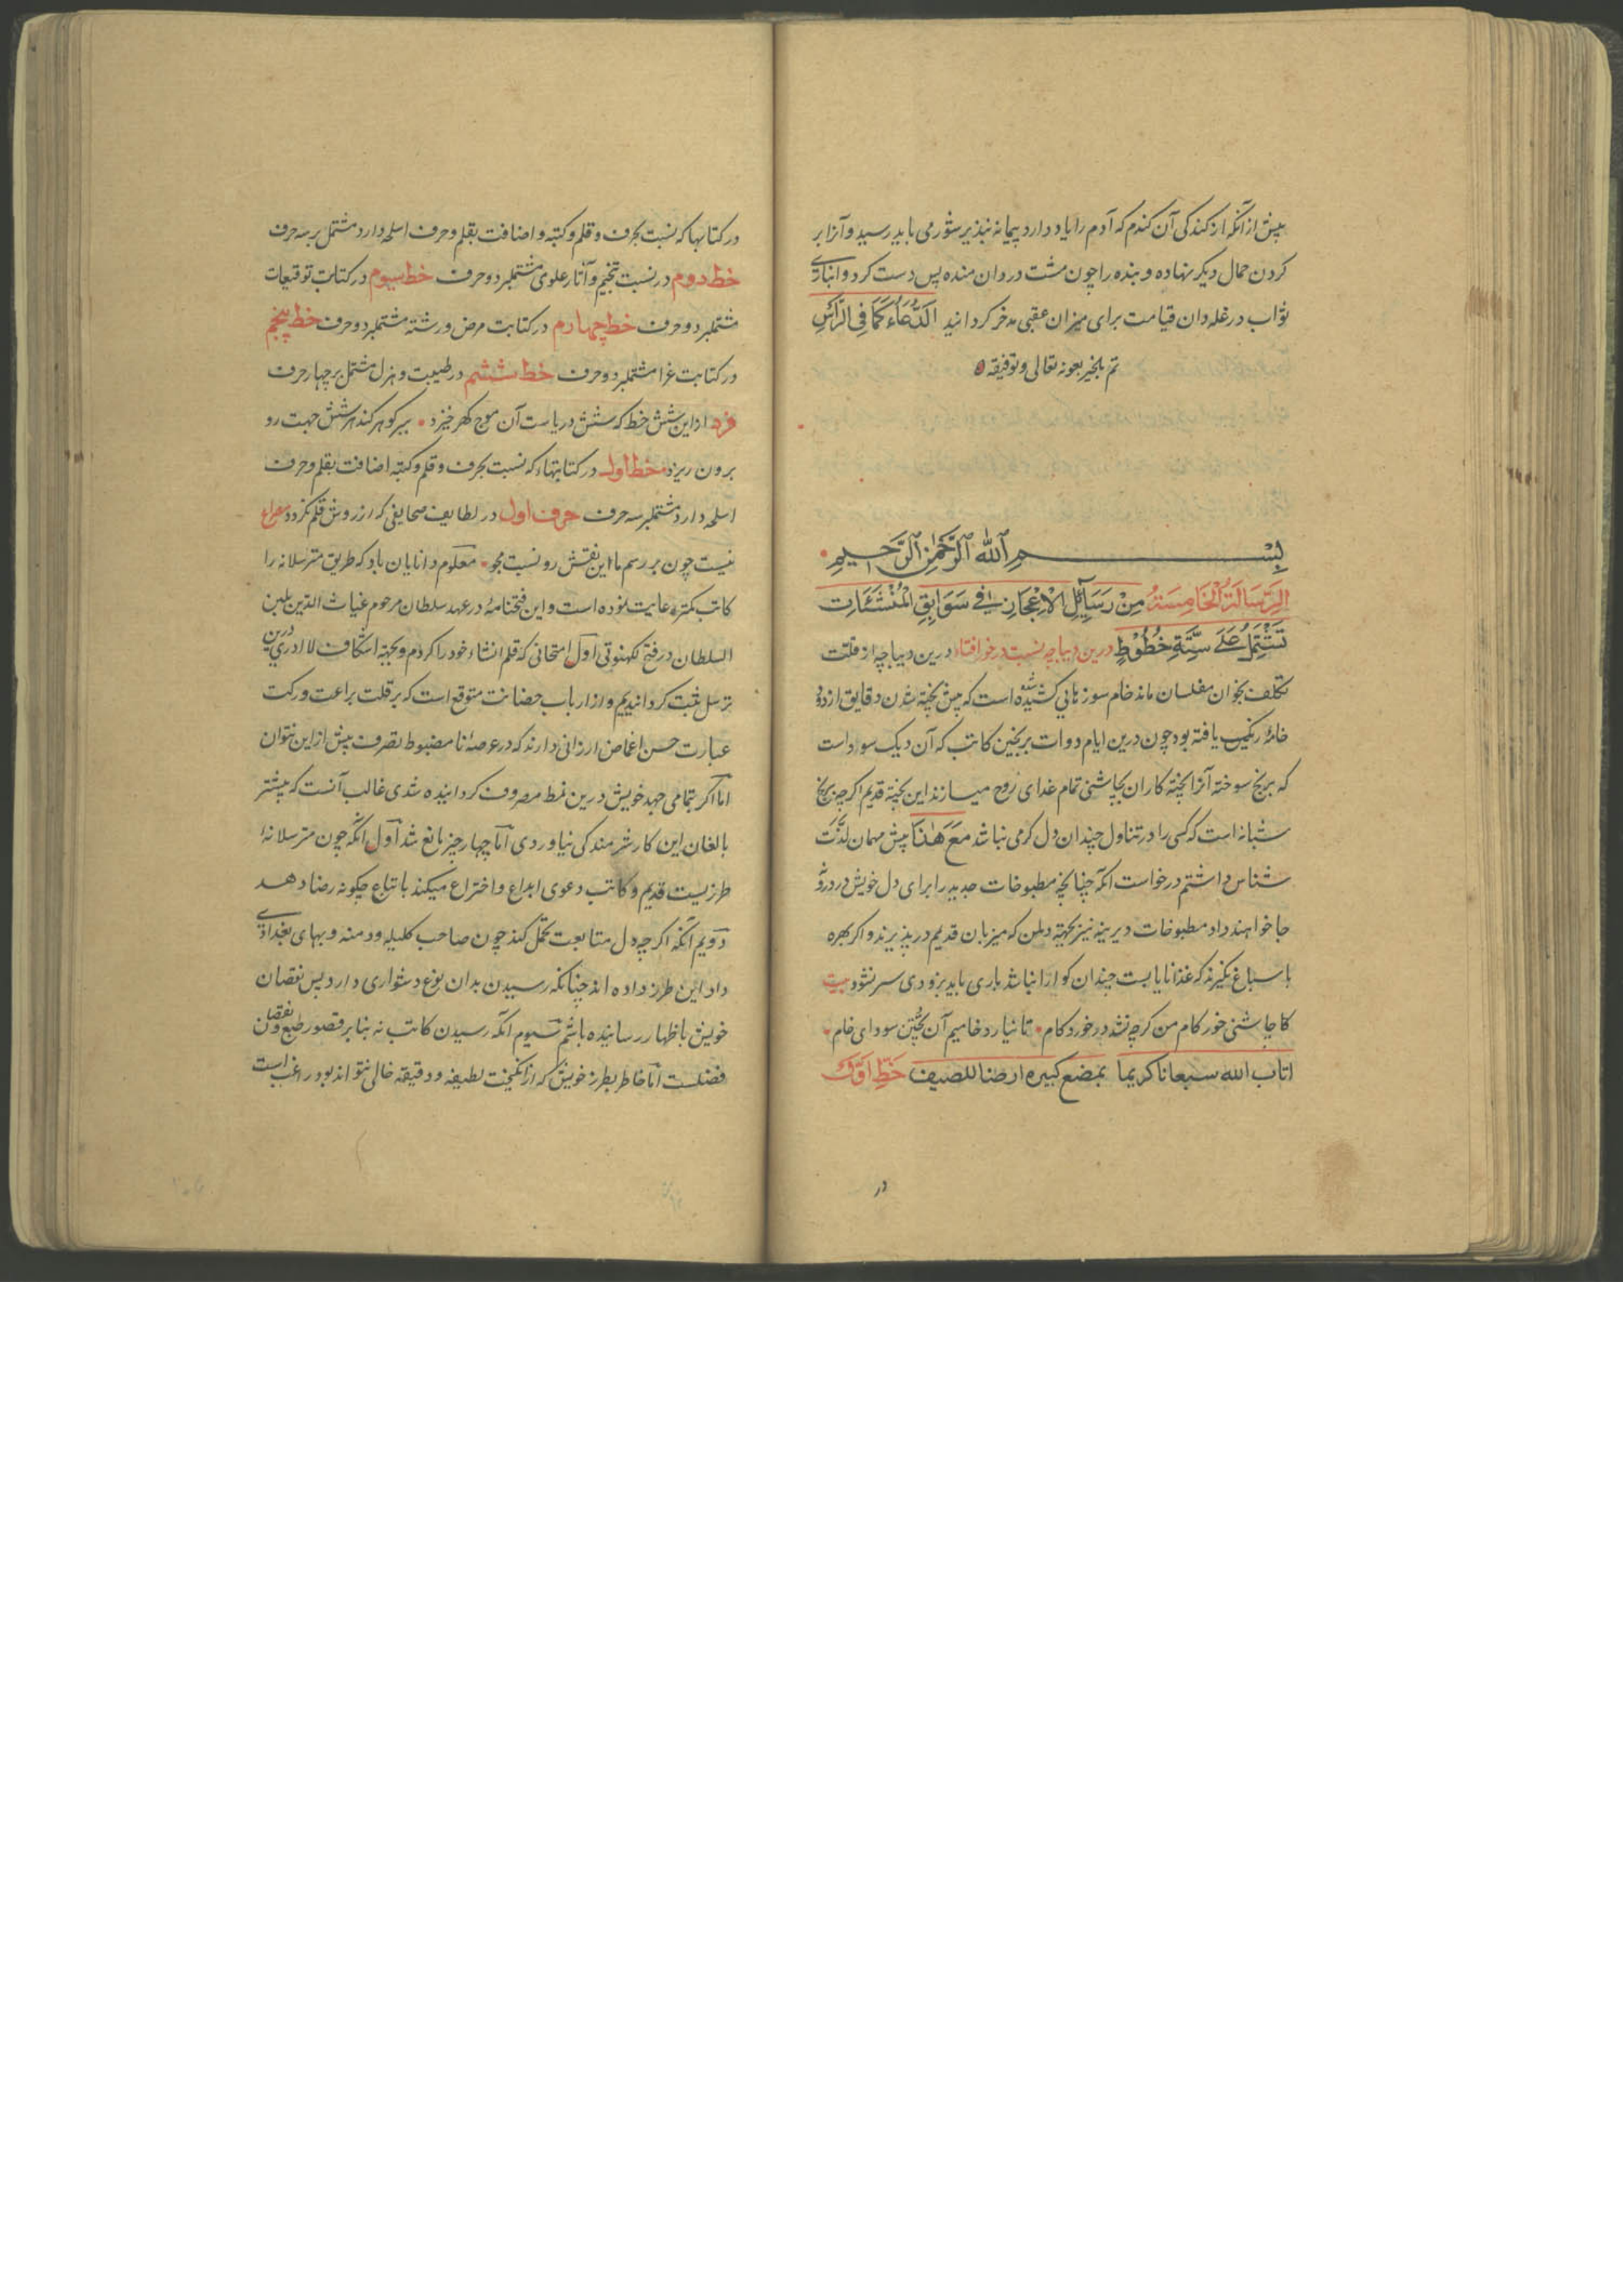 پیش از آنکه از کندکی آن کندم که آدم را یاد دارد پیمانه نپذیر شور می باید رسید و آنرا بر
کردن حمال دیکر نهاده و بنده را چون مشت در دان منده پس دست کرد و انباری
ثواب در غله دان قیامت برای میزان عقبی مدخر کردانید الدُّعَاء کَمَا فِی الرَّأسِ
تم بالخیر بعونه تعالی و توفیقه
بِسْمِ اللّٰهِ الرَّحْمٰنِ الرَّحِیمِ
الرِّسَالَةُ الْخَامِسَةُ مِنْ رَسَایِلِ الاِعْجَازِ فِی سَوَابِقِ الْمُنْشَئَاتِ
تَشْتَمِلُ عَلَی سِتَّةِ خُطُوْطٍ درین دیباجه نسبت در خور افتاد درین دیباچه از قلت
تکلف بخوان مفلسان ماند خام سوز نابی کشیده شده است که پیش پخته شدن دقایق از دود
خانهٔ رنکین یافته بود چون درین ایام دوات بر پختن کاتب که آن دیک سود است
که برنج سوخته آنرا پخته کاران بچاشنی تمام غدای روح میسازند این پخته قدیم اکرچه برنج
شبانه است که کسی را در تناول چندان دل کرمی نباشد مَعَ هٰذَا پیش مهمان لذّت
شناس داشتم درخواست آنکه چنانچه مطبوخات جدید را برای دل خویش در درونه
جا خواهند داد مطبوخات دیرینه نیز بجهته دل من که میزبان قدیم در پذیرند و اکر بهره
باسباغ نکیرند که غذا نابایست چندان کوارا نباشد باری باید بزودی سر نشود بیت
کاچاشنی خور کام من کرچه نشد در خورد کام تا نیارد خامیم آن پختن سودای خام
اتاب الله سبعانا کریما بمضع کبیره ارضنا للصیف خَطِّ اوّل
در
در کتابها که نسبت بحرف و قلم و کتبه و اضافت بقلم و حرف اسلحه دارد مشتمل بر سه حرف
خط دوم در نسبت تنجیم و آثار علوی مشتملبر دو حرف خط سیوم در کتابت توقیعات
مشتملبر دو حرف خط چهارم در کتابت مرض و رشته مشتملبر دو حرف خط پنجم
در کتابت غرا مشتملبر دو حرف خط ششم در طیبت و هزل مشتمل بر چهار حرف
فرد از این شش خط که شش دریاست آن موج کهر خیزد بیر کوهر کند هر شش جهت رو
برون ریزد خط اول در کتابتهاء که نسبت بحرف و قلم و کتبه اضافت بقلم و حرف
اسلحه دارد مشتملبر سه حرف حرف اول در لطایف صحایفی که از روش قلم نکردد مصراع
نیست چون بر رسم ما این نقش رو نسبت مجو معلوم دانایان باد که طریق مترسلانه را
کاتب کمتر رعایت نموده است و این فتحنامه در عهد سلطان مرحوم غیاث الدین بلبن
السلطان در فتح لکهنوتی اول امتحانی که قلم انشاء خود را کردم و بجهته اشکاف لا ادری درین
ترسل ثبت کردانیدیم و از ارباب حضانت متوقع است که بر قلت براعت و رکت
عبارت حسن اغماض ارزانی دارند که در عرصهٔ نا مضبوط تصرف پیش از این نتوان
اما اکر بتمامی جهد خویش درین نمط مصروف کردانیده شدی غالب آنست که پیشتر
بالغان این کار شرمندکی نیاوردی اما چهار چیز مانع شد اول آنکه چون مترسلانه
طرزیست قدیم و کاتب دعوی ابداع و اختراع میکند باتباع چکونه رضا دهد
دویم آنکه اکر چه دل متابعت تحمل کند چون صاحب کلیله و دمنه و بهای بغدادی
داد این طرز داده اند چنانکه رسیدن بدان نوع دشواری دارد پس نقصان
خویش باظهار رسانیده باشم سیوم آنکه رسیدن کاتب نه بنا بر قصور طبع و نقصان
فضلست اما خاطر بطرز خویش که از انکیخت لطیفه و دقیقه خالی نتواند بود راغب است